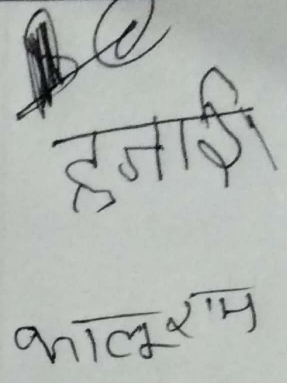 हजारी
कालुराम